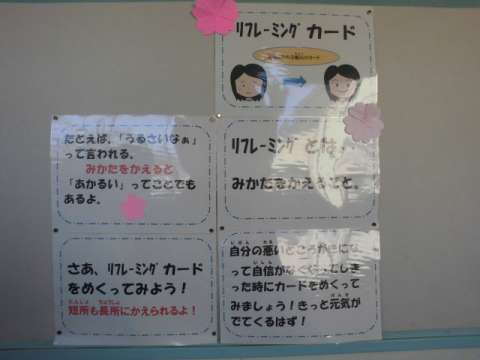 リフレーミング カード
リフレーミング とは、
みかたをかえること。
たとえば、「うるさいなぁ」
って言われる。
みかたをかえると
「あかるい」ってことでも
あるよ。
自分の悪いところが気にな
って自信がなくなってしま
った時にカードをめくって
みましょう!きっと元気が
でてくるはず!
さあ、リフレーミング カード
をめくってみよう!
短所も長所にかえられるよ!